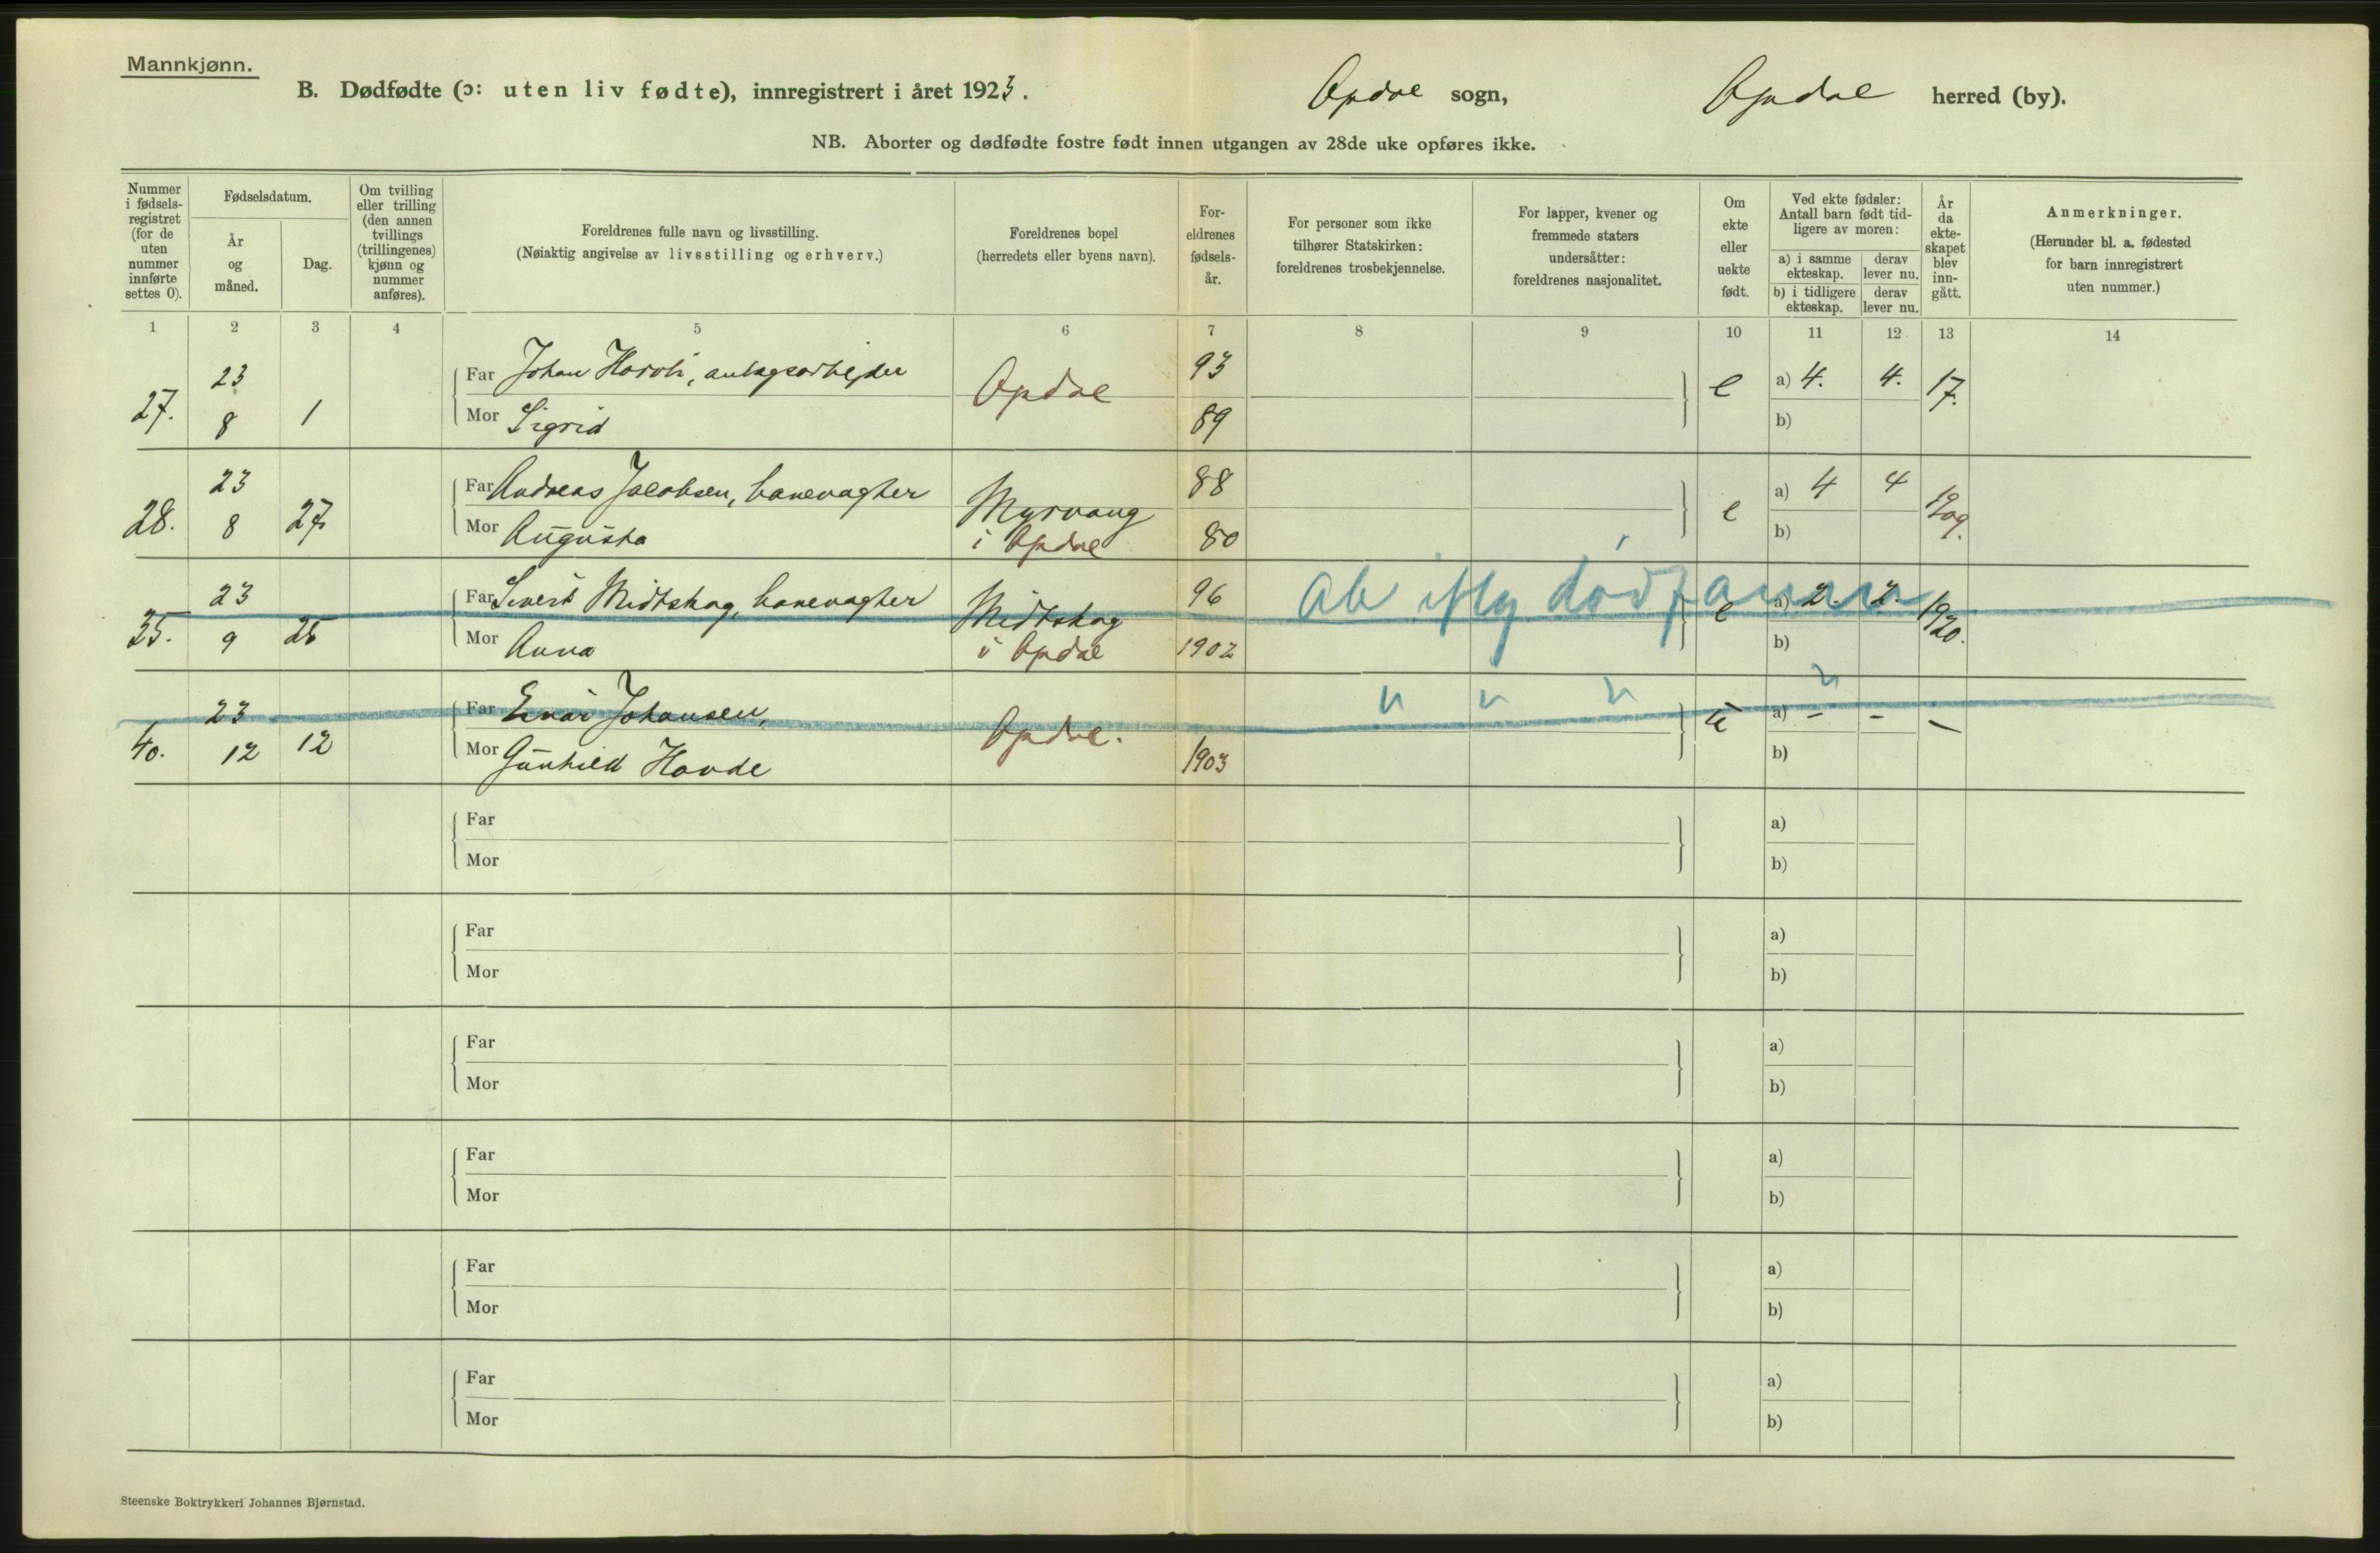 Mannkjønn.
B. Dødfødte (ɔ: uten liv fødte), innregistrert i året 1923. Opdal sogn, Opdal herred (by).
NB. Aborter og dødfødte fostre født innen utgangen av 28de uke opføres ikke.
Nummer
i fødsels-
registret
(for de
uten
nummer
innførte
settes 0).
Fødselsdatum.
År
og
måned.
Dag.
Om tvilling
eller trilling
(den annen
tvillings
(trillingenes)
kjønn og
nummer
anføres).
Foreldrenes fulle navn og livsstilling.
(Nøiaktig angivelse av livsstilling og erhverv.)
Foreldrenes bopel
(herredets eller byens navn).
For-
eldrenes
fødsels-
år.
For personer som ikke
tilhører Statskirken:
foreldrenes trosbekjennelse.
For lapper, kvener og
fremmede staters
undersåtter:
foreldrenes nasjonalitet.
Om
ekte
eller
uekte
født.
Ved ekte fødsler:
Antall barn født tid-
ligere av moren:
a) i samme
ekteskap.
derav
lever nu.
b) i tidligere
ekteskap.
derav
lever nu.
År
da
ekte-
skapet
blev
inn-
gått.
Anmerkninger.
(Herunder bl. a. fødested
for barn innregistrert
uten nummer.)
1 2 3 4 5 6 7 8 9 10 11 12 13 14
27. 23 8 1 Far Johan 93 Opdal e a) 4. 4. 17.
Mor Sigrid 89 b)
28. 23 8 27 Far Andreas Jacobsen, banevagter Myrvang 88 e a) 4 4 1909.
Mor Augusta i Opdal 80 b)
35. 23 9 25 Far Sivert Midtskog, banevagter Midtskog 96 e a) 2. 2. 1920.
Mor Anna i Opdal 1902 b)
40. 23 12 12 Far Einar Johansen, Opdal. " " " u a) - - -
Mor Gunhild Hovde 1903 b)
Far a)
Mor b)
Far a)
Mor b)
Far a)
Mor b)
Far a)
Mor b)
Far a)
Mor b)
Far a)
Mor b)
Steenske Boktrykkeri Johannes Bjørnstad.